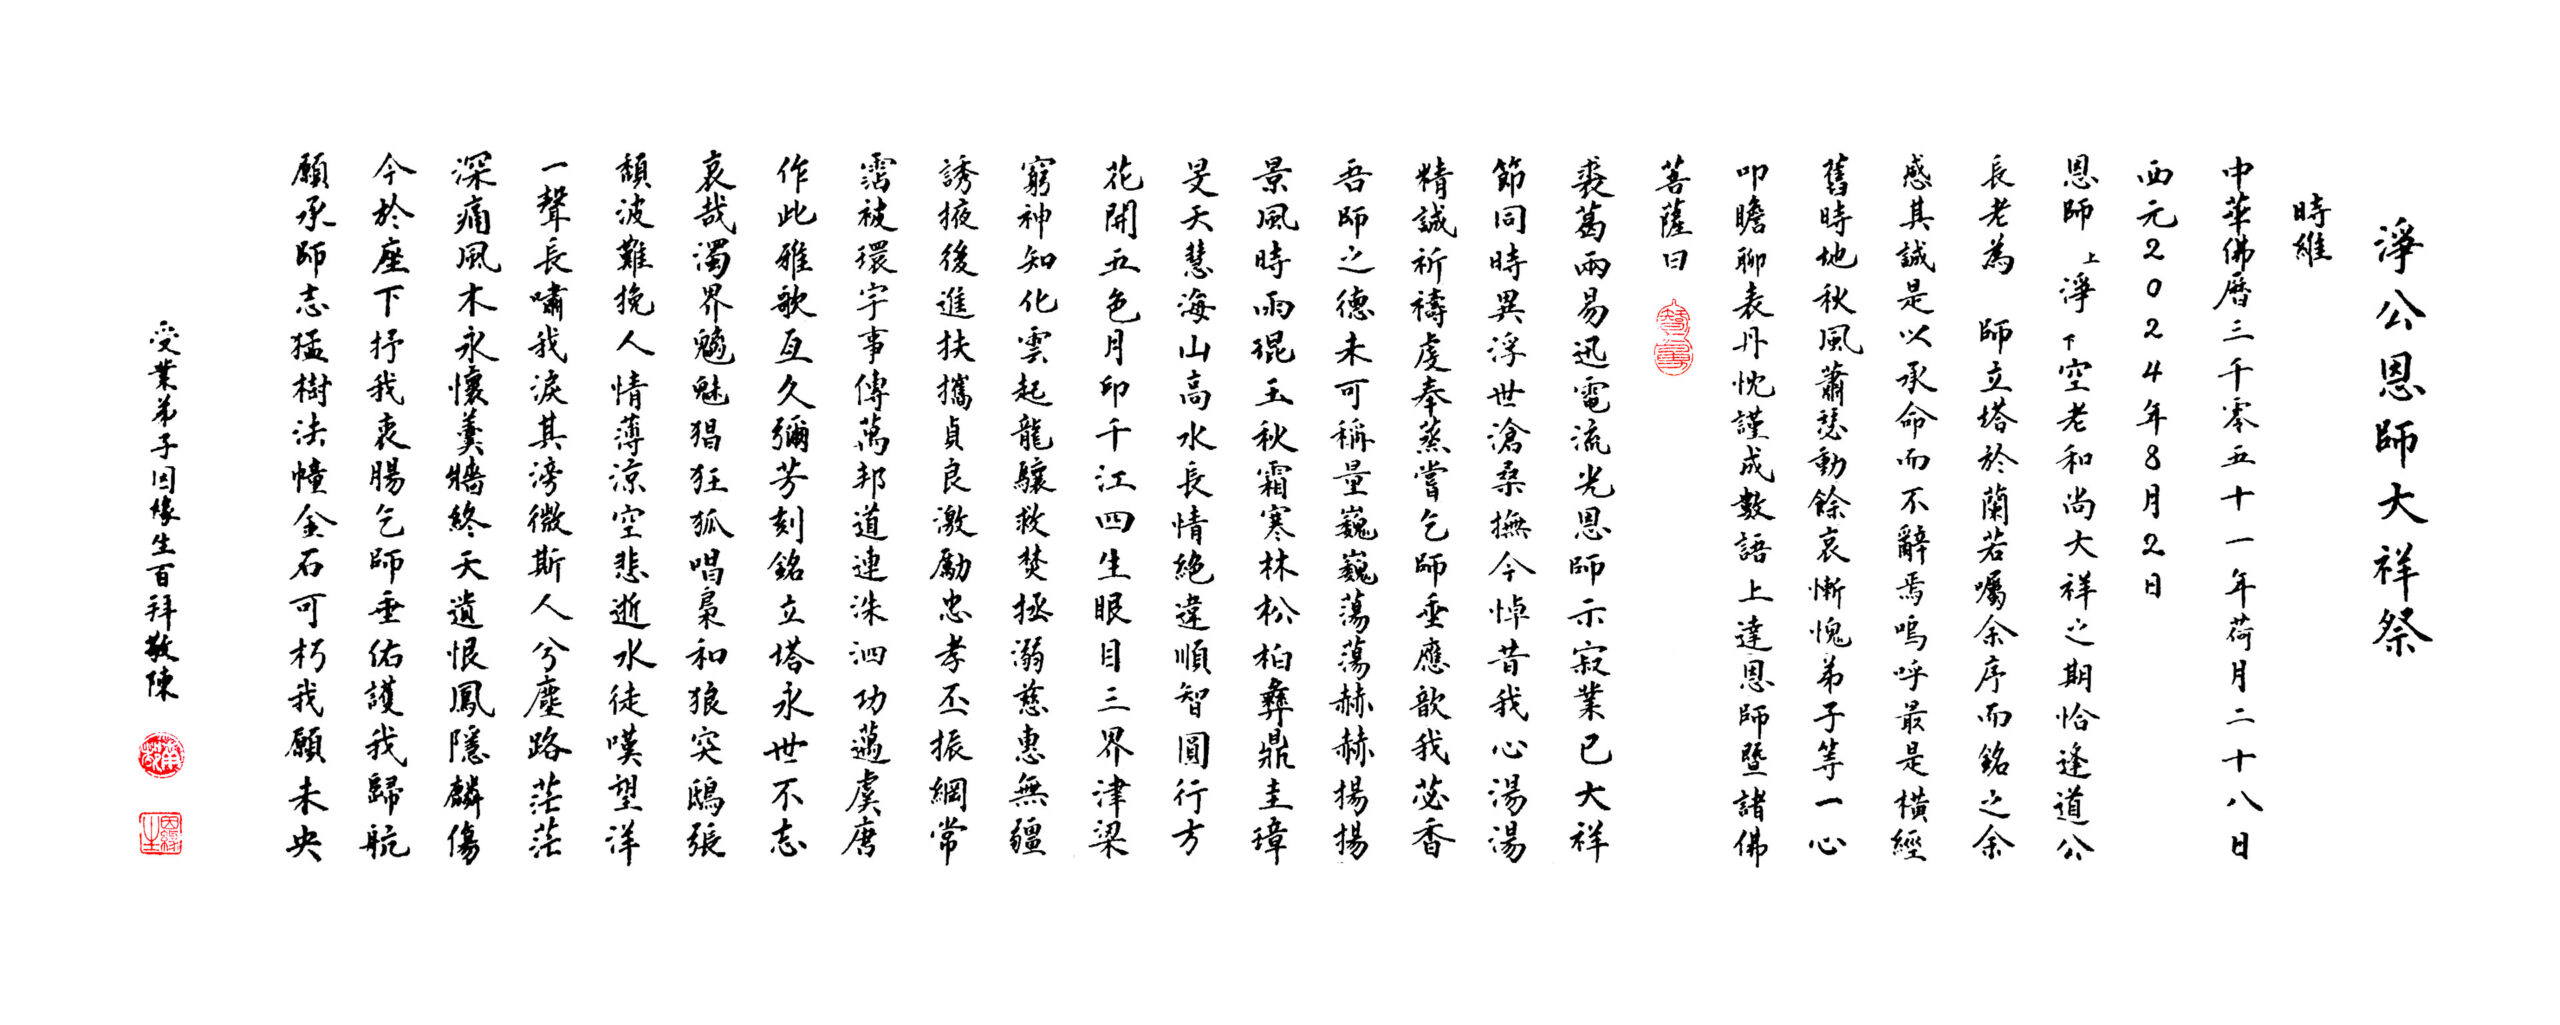 淨公恩師大祥祭
時維
中華佛曆三千零五十一年荷月二十八日
西元2024年8月2日
恩師上淨下空老和尚大祥之期恰逢道公
長老為 師立塔於蘭若囑余序而銘之余
感其誠是以承命而不辭焉嗚呼最是橫經
舊時地秋風蕭瑟動餘哀慚愧弟子等一心
叩瞻聊表丹忱謹成數語上達恩師暨諸佛
菩薩曰
裘葛兩易迅電流光恩師示寂業已大祥
節同時異浮世滄桑撫今悼昔我心湯湯
精誠祈禱虔奉蒸嘗乞師垂應歆我苾香
吾師之德未可稱量巍巍蕩蕩赫赫揚揚
景風時雨琨玉秋霜寒林松柏彝鼎圭璋
旻天慧海山高水長情絕違順智圓行方
花開五色月印千江四生眼目三界津梁
窮神知化雲起龍驤救焚拯溺慈惠無疆
誘掖後進扶攜貞良激勵忠孝丕振綱常
霑被環宇事傳萬邦道連洙泗功邁虞唐
作此雅歌亙久彌芳刻銘立塔永世不忘
哀哉濁界魑魅猖狂狐唱梟和狼突鴟張
頹波難挽人情薄涼空悲逝水徒嘆望洋
一聲長嘯我淚其滂微斯人兮塵路茫茫
深痛風木永懷羹牆終天遺恨鳳隱麟傷
今於座下抒我衷腸乞師垂佑護我歸航
願承師志猛樹法幢金石可朽我願未央
受業弟子因緣生百拜敬陳
因緣生